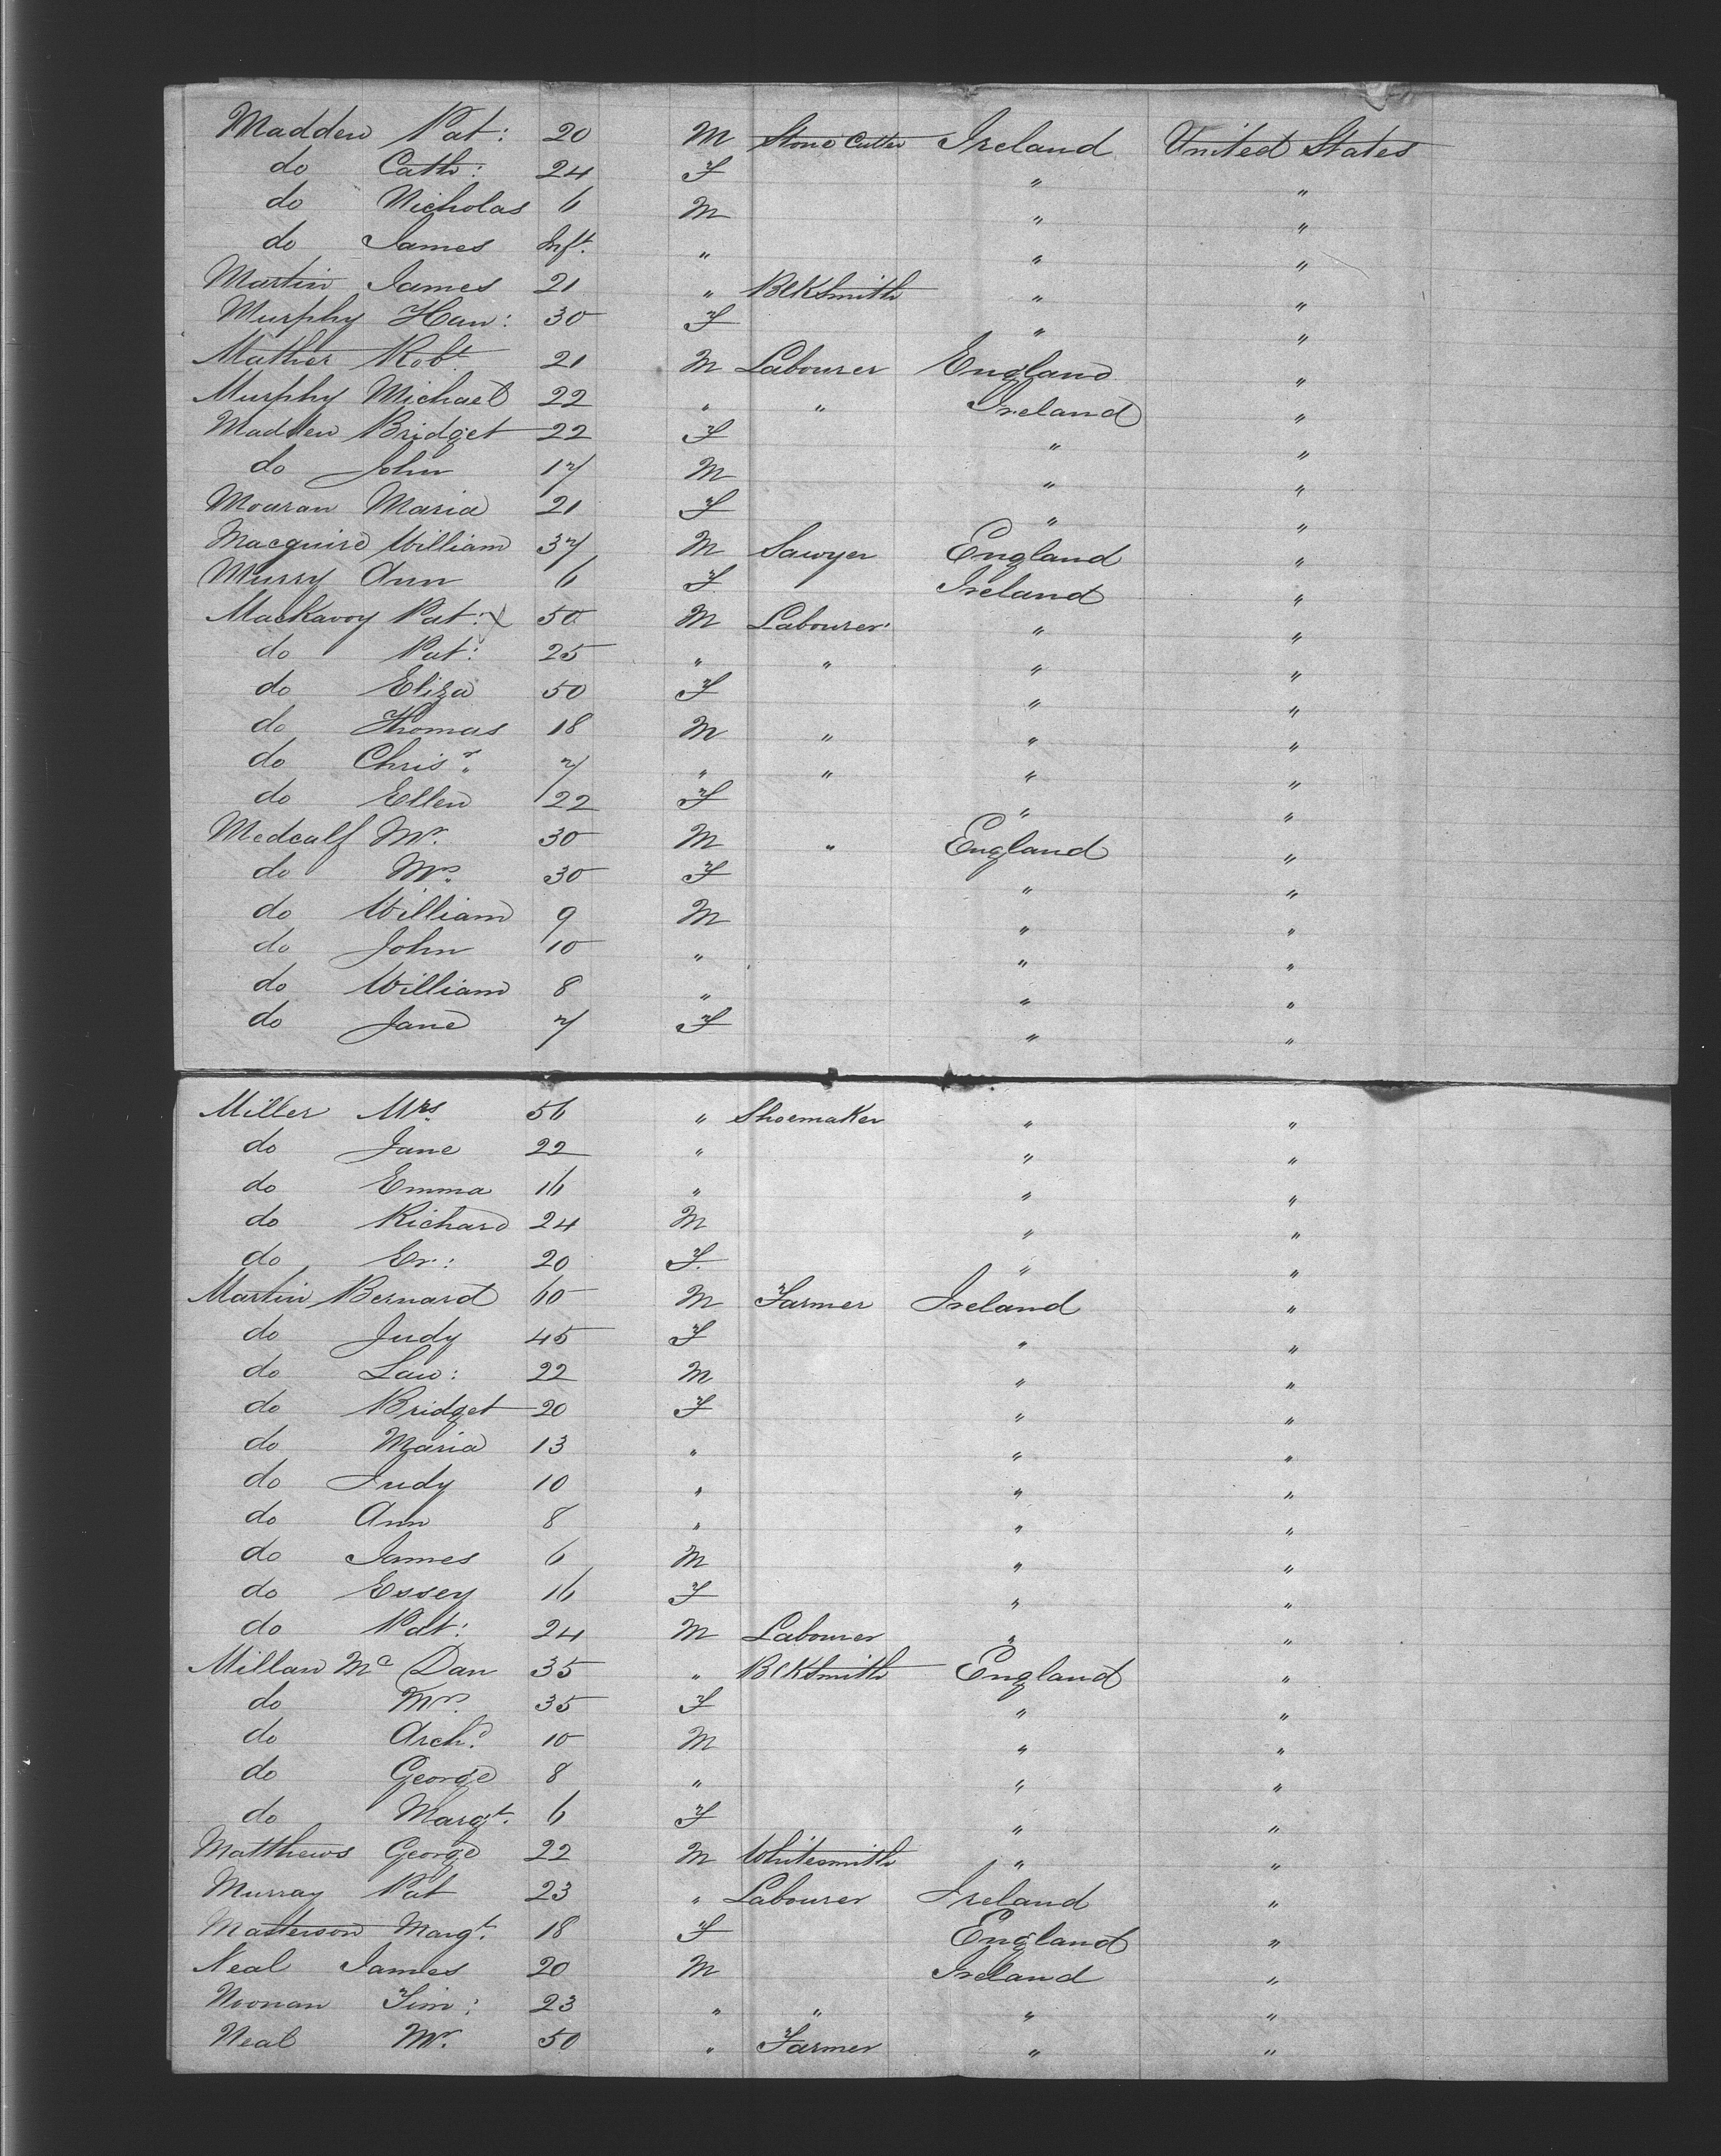 Madden Pat: 20 M Stone Cutter Ireland United States
do Cath: 24 F " "
do Nicholas 6 M " "
do James Inft. " " "
Martin James 21 " BlkSmith " "
Murphy Han: 30 F " "
Mather Robt 21 M Labourer England "
Murphy Michael 22 " " Ireland "
Madden Bridget 22 F " "
do John 17 M " "
Mouran Maria 21 F " "
Macguire William 37 M Sawyer England "
Murry Ann 6 F Ireland "
Mackavoy Pat: x 50 M Labourer " "
do Pat: 25 " " " "
do Eliza 50 F " "
do Thomas 18 M " " "
do Chrisr 7 " " " "
do Ellen 22 F " "
Medcalf Mr. 30 M " England "
do Mrs. 30 F " "
do William 9 M " "
do John 10 " " "
do William 8 " " "
do Jane 7 F " "
Miller Mrs. 56 " Shoemaker " "
do Jane 22 " " "
do Emma 16 " " "
do Richard 24 M " "
do Er: 20 F. " "
Martin Bernard 60 M Farmer Ireland "
do Judy 45 F " "
do Law: 22 M " "
do Bridget 20 F " "
do Maria 13 " " "
do Judy 10 " " "
do Ann 8 " " "
do James 6 M " "
do Essey 16 F " "
do Pat: 24 M Labourer " "
Millan Mc Dan 35 " BlkSmith England "
do Mrs. 35 F " "
do Archd. 10 M " "
do George 8 " " "
do Margt. 6 F " "
Matthews George 22 M Whitesmith " "
Murray Pat 23 " Labourer Ireland "
Matterson Margt. 18 F England "
Neal James 20 M Ireland "
Noonan Tim: 23 " " " "
Neal Mr. 50 " Farmer " "